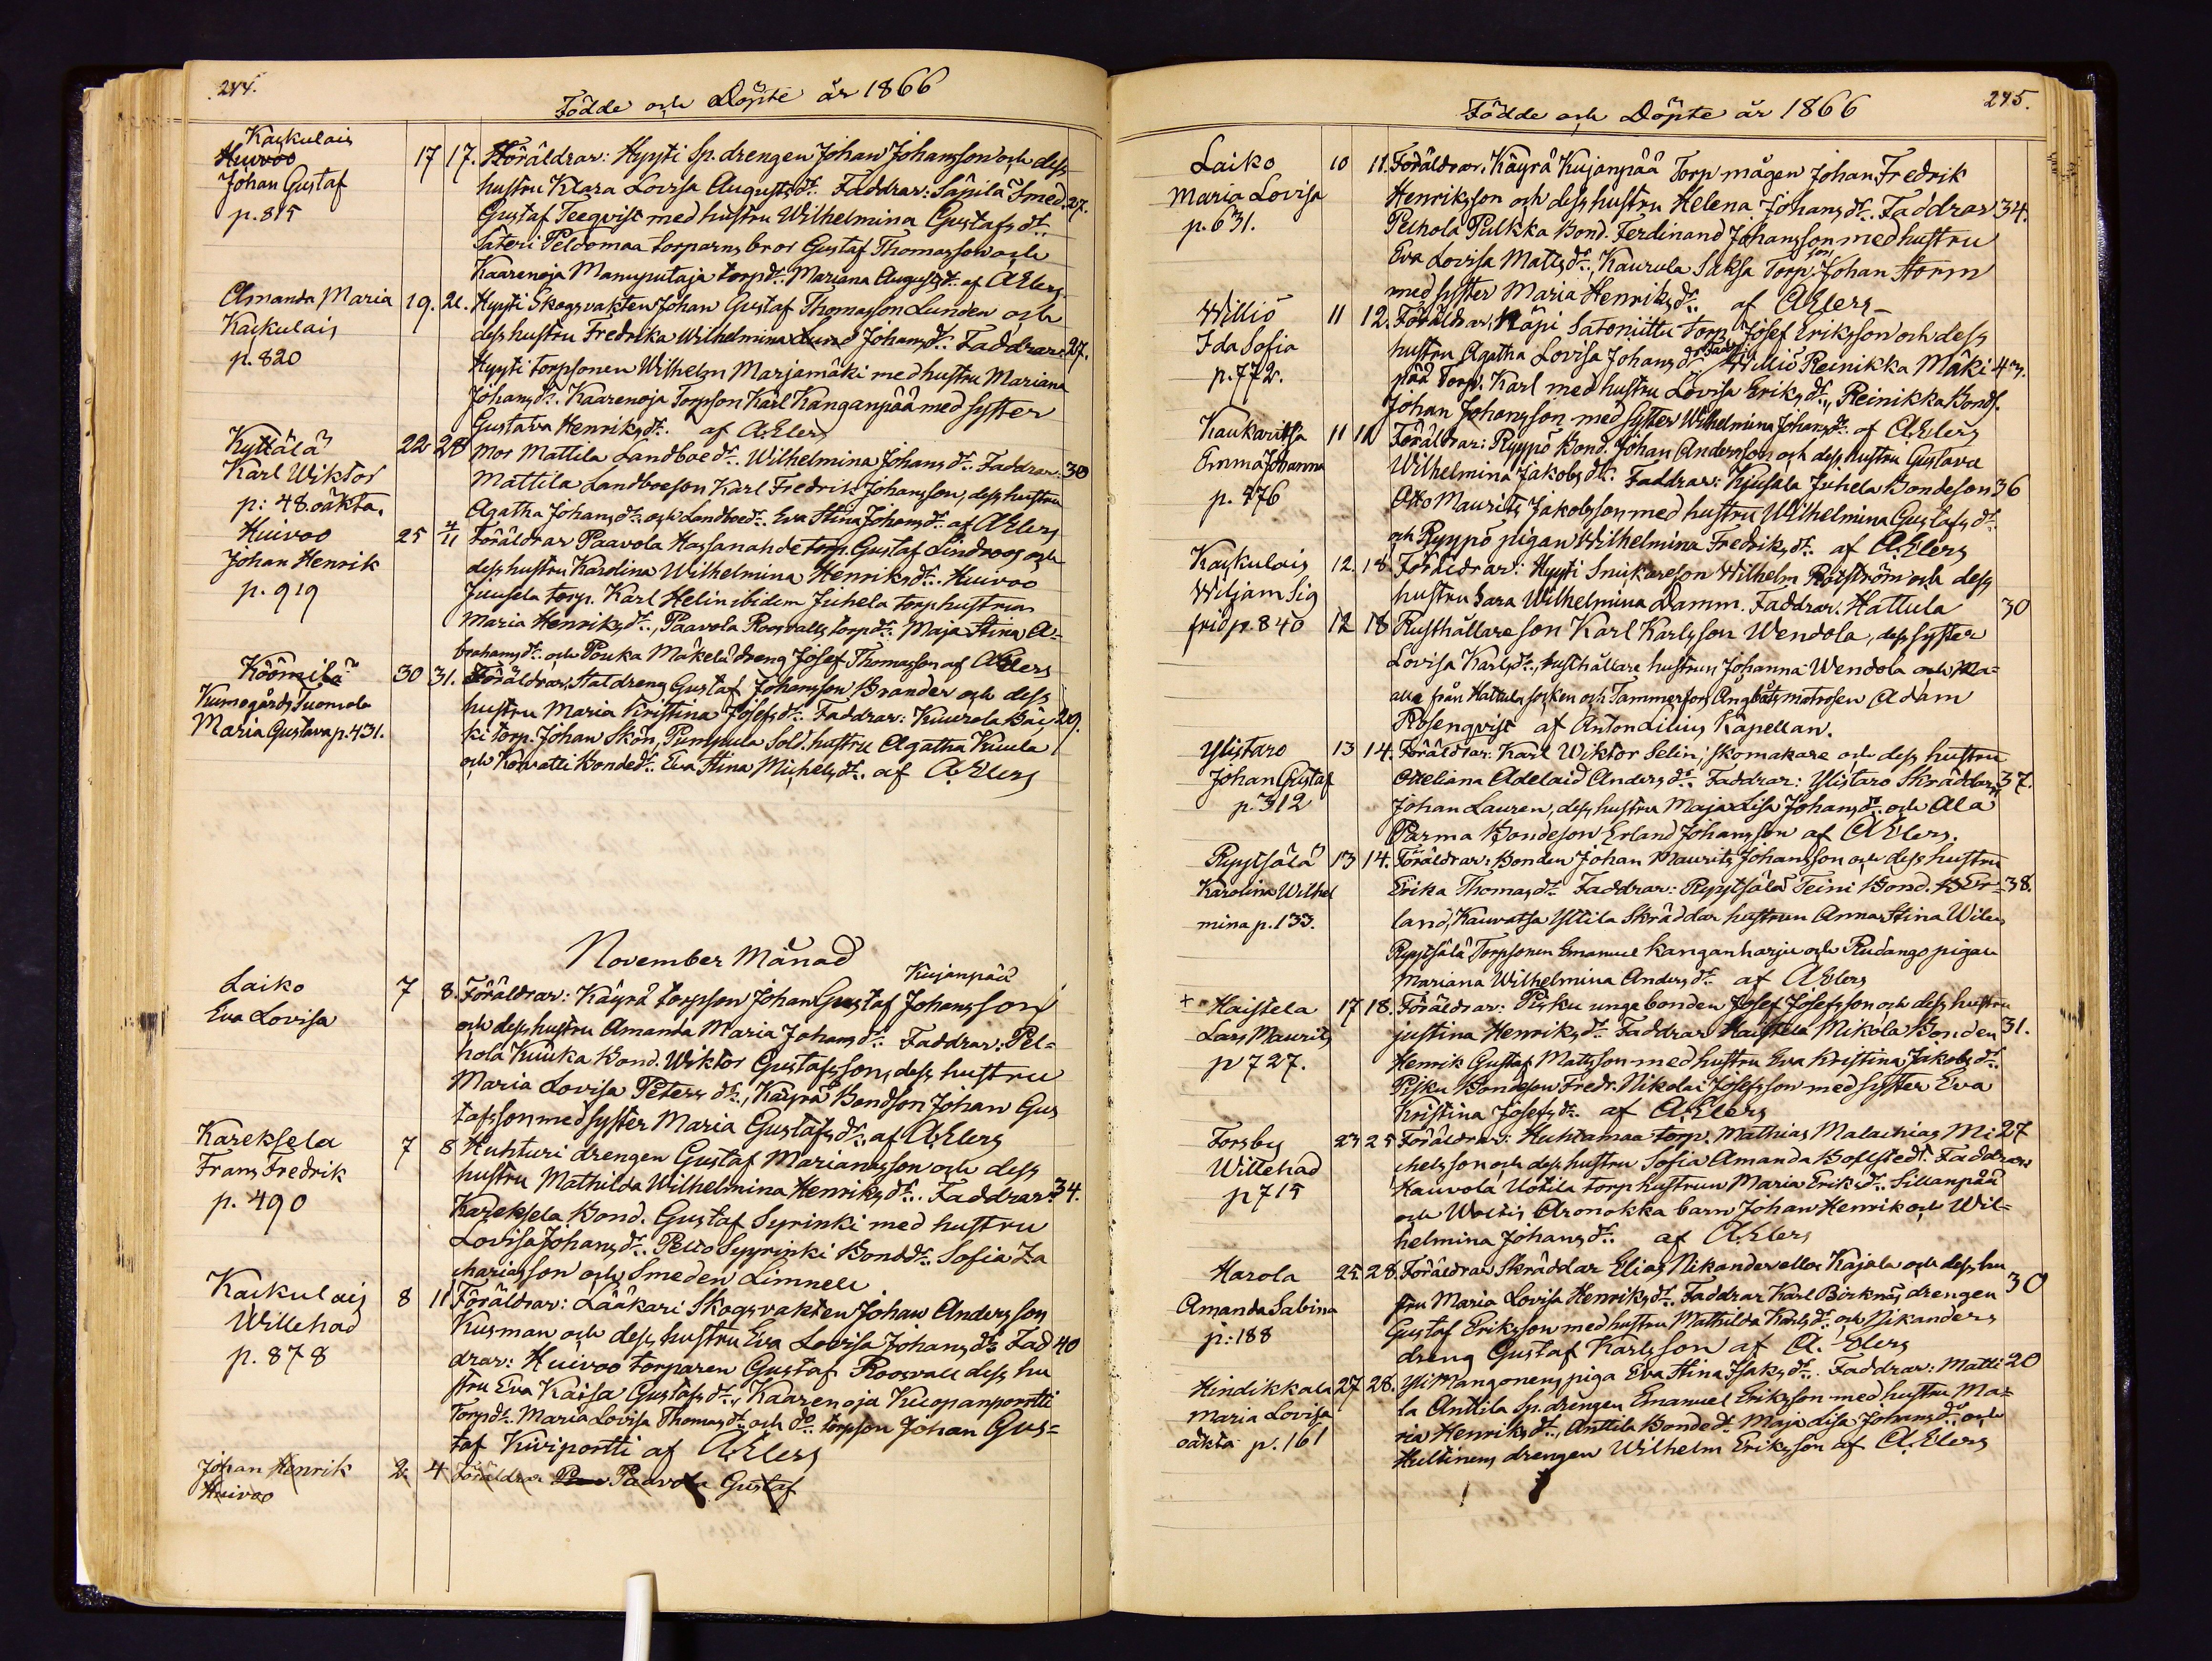 244.
Födde och Döpte år 1866
Kaskulais
Huivoo
Johan Gustaf
p. 815
17 17. Föräldrar: Hyysti Sp. drengen Johan Johansson och dess
hustru Klara Lovisa Augustsdr. Faddrar: Säpilä Smed. 27.
Gustaf Teeqvist med hustru Wilhelmina Gustafsdr.
Säteri Peldomaa torparns bror Gustaf Thomasson och
Kaarenoja Mamputaja torpdr. Mariana Augustsdr. af A Elers
Amanda Maria
Kaskulais
p. 820
19. 21. Hyysti Skogsvakten Johan Gustaf Thomasson Lunden och
dess hustru Fredrika Wilhelmina Lund Johansdr. Faddrar: 27.
Hyysti torpsonen Wilhelm Marjamäki med hustru Mariana
Johansdr. Kaarenoja Torpson Karl Kanganpää med syster
Gustava Henriksdr. af A. Elers
Kyttälä
Karl Wiktor
p: 48. oäkta.
22 28 Mor Mattila Landboedr. Wilhelmina Johansdr. Faddrar: 30
Mattila Landboeson Karl Fredrik Johansson, dess hustru
Agatha Johansdr. och Landboedr. Eva Stina Johansdr. af A Elers
Huivoo
Johan Henrik
p. 919
25 4/11 Föräldrar Paavola Hassanahde torp. Gustaf Lindroos och
dess hustru Karolina Wilhelmina Henriksdr. Huivoo
Juusela torp. Karl Helin ibidem Juhela torphustrun
Maria Henriksdr., Paavola Roosvalls torpdr. Maja Stina A-
brahamsdr. och Pouka Mäkelä dreng Josef Thomasson af A Elers
Köömilä
Kumogårds Tuomola
Maria Gustava p. 431.
30 31. Föräldrar, Statdreng Gustaf Johansson Brander och dess
hustru Maria Kristina Josefsdr. Faddrar: Kuurola Bäc- 29.
ki torp. Johan Skön, Pumpula Sold. hustru Agatha Kuula
och Konvatti Bondedr. Eva Stina Michelsdr. af A. Elers
November Månad
Laiko
Eva Lovisa
Kujanpää
7 8. Föräldrar: Käyrä torpson Johan Gustaf Johansson
och dess hustru Amanda Maria Johansdr. Faddrar: Pel-
hola Kuuka Bond. Wiktor Gustafsson, dess hustru
Maria Lovisa Petersdr., Käyrä Bondson Johan Gus
tafsson med syster Maria Gustafsdr. af A. Elers
Kareksela
Frans Fredrik
p. 490
7 8 Huhturi drengen Gustaf Mariansson och dess
hustru Mathilda Wilhelmina Henriksdr. Faddrar: 34.
Kareksela Bond. Gustaf Syrinki med hustru
Lovisa Johansdr. Pelto Syprinki Bonddr. Sofia Za
chariasson och Smeden Limnell
Kaskulais
Willehad
p. 878
8 11 Föräldrar: Lääkari Skogsvakten Johan Andersson
Kusman och dess hustru Eva Lovisa Johansdr. Fad 40
drar: Huivoo torparen Gustaf Roosvall dess hu
stru Eva Kaisa Gustafsdr., Kaarenoja Kuopanportti
Torpdr. Maria Lovisa Thomasdr. och do torpson Johan Gus-
taf Kiviportti af A. Elers
Johan Henrik
Huivoo
2. 4 Föräldrar Paavola Gustaf
245.
Födde och Döpte år 1866
Laiko
Maria Lovisa
p. 631.
10 11. Föräldrar. Käyrä Kujanpää Torp mågen Johan Fredrik
Henriksson och dess hustru Helena Johansdr. Faddrar 34.
Pelhola Pulkka Bond. Ferdinand Johansson med hustru
Eva Lovisa Mattsdr., Kaurula Saksa Torp. son Johan Storm
med syster Maria Henriksdr. af A Elers
Williö
Ida Sofia
p. 772.
11 12. Föräldrar, Näpi Satoniittu torp. Josef Eriksson och dess
hustru Agatha Lovisa Johansdr. Faddr: Williö Reinikka Mäki 43.
pää Torp. Karl med hustru Lovisa Eriksdr., Reinikka Bonds.
Johan Johansson med syster Wilhelmina Johansdr. af A Elers
Kaukaritsa
Emma Johanna
p. 476
11 12 Föräldrar: Ryyppö Bond. Johan Andersson och dess hustru Gustava
Wilhelmina Jakobsdr. Faddrar: Kjusala Juhela Bondeson 36
Otto Maurits Jakobsson med hustru Wilhelmina Gustafsdr.
och Ryyppö pigan Wilhelmina Fredriksdr. af A. Elers
Kaskulais
Wiljam Sig
frid p. 840
12. 18. Föräldrar: Hyysti Snickareson Wilhelm Roiström och dess
hustru Sara Wilhelmina Damm. Faddrar. Hattula 30
12 18 Rusthållareson Karl Karlsson Wendola, dess syster
Lovisa Karlsdr., rusthållare hustrun Johanna Wendola och Ma-
alla från Hattula socken och Tammerfors Ångbåts matrosen Adam
Rosenqvist af Anton Lilius Kapellan.
Ylistaro
Johan Gustaf
p. 312
13 14. Föräldrar: Karl Wiktor Selin, skomakare och dess hustru
Otteliana Adelaid Andersdr. Faddrar: Ylistaro Skräddarn 37.
Johan Lauren, dess hustru Maja Lisa Johansdr. och Ala
Parma Bondeson Erland Johansson af A Elers.
Ryytsälä
Karolina Wilhel
mina p. 133.
13 14. Föräldrar: Bonden Johan Maurits Johansson och dess hustru
Erika Thomasdr. Faddrar: Ryytsälä Teini Bond. Er- 38.
land, Kauvatsa Yttilä Skräddar hustrun Anna Stina Wilen
Ryytsälä Torpsonen Emanuel Kanganharju och Rudango pigan
Mariana Wilhelmina Andersdr. af A Elers
+ Haistela
Lars Maurits
p 727.
17 18. Föräldrar: Pirku unge bonden Josef Josefsson och dess hustru
justina Henriksdr. Faddrar Haistela Nikola Bonden 31.
Henrik Gustaf Mattsson med hustru Eva Kristina Jakobsdr.
Pirku Bondeson Fredr. Nikolai Josefsson med syster Eva
Kristina Josefsdr. af A. Elers
Forsby
Willehad
p 715
23 25 Föräldrar: Huhtamaa torp. Mathias Malachias Mi 27
chelsson och dess hustru Sofia Amanda Bollstedt. Faddrar
Hauvola Uotila torphustrun Maria Eriksdr. Sillanpää
och Woitis Aronokka barn Johan Henrik och Wil-
helmina Johansdr. af A. Elers
Harola
Amanda Sabina
p: 188
25 28. Föräldrar Skräddar Elias Nikander eller Kajala och dess hu
stru Maria Lovisa Henriksdr. Faddrar Karl Birknäs drengen 30
Gustaf Eriksson med hustru Mathilda Karlsdr. och Nikanders
dreng Gustaf Karlsson af A. Elers
Hindikkala
Maria Lovisa
oäkta p. 161
27 28. Yli Mangonens piga Eva Stina Isaksdr. Faddrar: Matti 20
la Anttila Sp. drengen Emanuel Eriksson med hustru Ma-
ria Henriksdr., Anttila Bondedr. Maja Lisa Johansdr. och
Hultinens drengen Wilhelm Eriksson af A. Elers